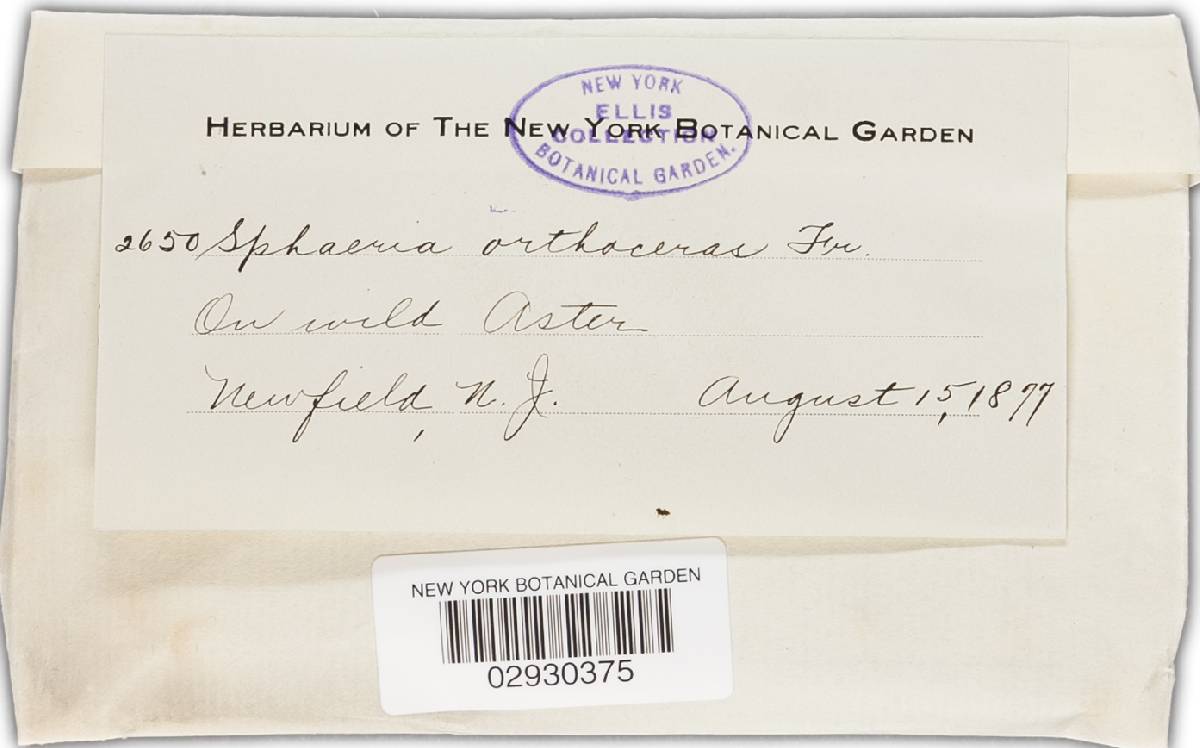 NEW YORK
ELLIS
COLLECTION
BOTANICAL GARDEN.
HERBARIUM OF THE NEW YORK BOTANICAL GARDEN
2650 Sphaeria orthoceras Fr.
On wild Aster
Newfield, N. J. August 15, 1877
NEW YORK BOTANICAL GARDEN
02930375